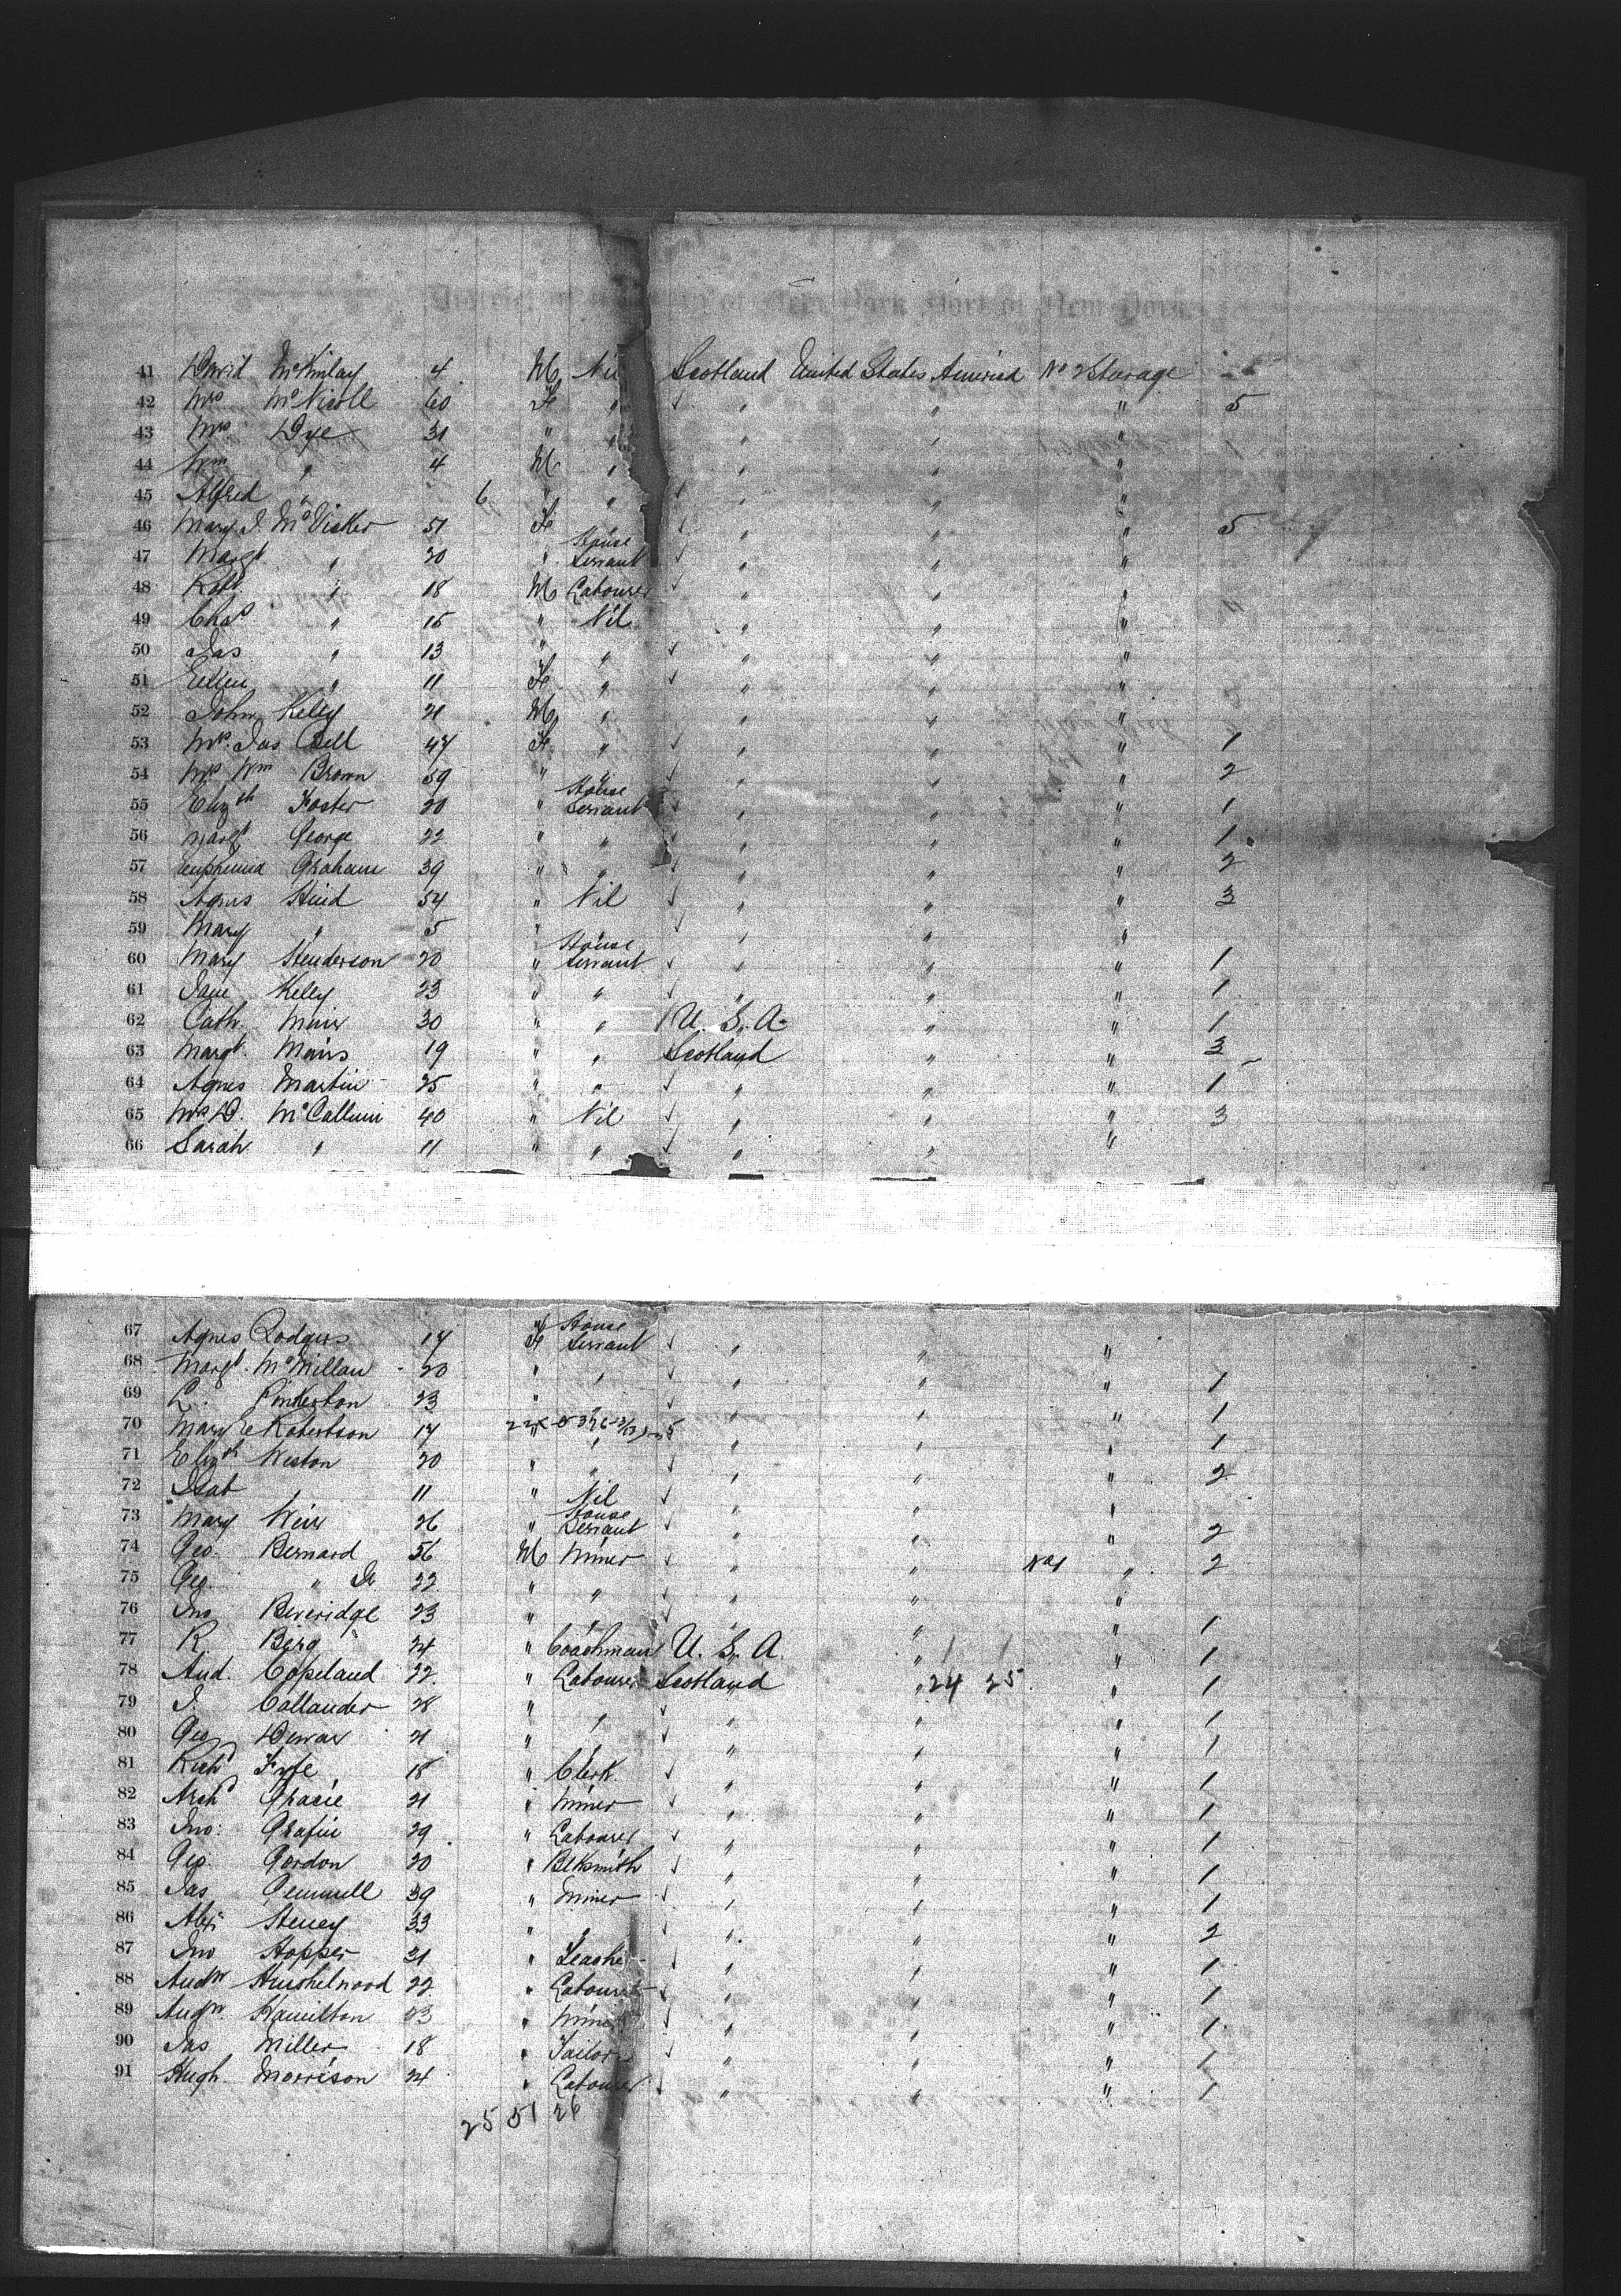 41 David McKinlay 4 M Nil Scotland United States America No 2 Steerage
42 Mrs McNicoll 60 Fe " " " " 5
43 Mrs Dye 31 " " " " "
44 Wm " 4 M " " " "
45 Alfred " 6 " " " " "
46 Mary J. McVicker 51 Fe " " " 5
47 Margt " 20 " House Servant " " "
48 Robt " 18 M Labourer " " "
49 Chas " 15 " Nil " " "
50 Jas " 13 " " " " "
51 Ellen " 11 Fe " " " "
52 John Kelly 21 M " " " "
53 Mrs Jas Bell 47 Fe " " " " 1
54 Mrs Wm Brown 59 " " " " " 2
55 Elizth Foster 20 " House Servant " " " 1
56 Margt George 22 " " " " " 1
57 Euphemia Graham 39 " " " " " 2
58 Agnes Hind 54 " Nil " " " 3
59 Mary " 5 " " " " "
60 Mary Henderson 20 " House Servant " " " 1
61 Jane Kelly 23 " " " " " 1
62 Cath. Muir 30 " " U. S. A. " " 1
63 Margt. Mairs 19 " " Scotland " " 3
64 Agnes Martin 25 " " " " " 1
65 Mrs D. McCallum 40 " Nil " " " 3
66 Sarah " 11 " " " " "
67 Agnes Rodgers 17 Fe House Servant " " "
68 Margt. McMillan 20 " " " " " 1
69 L. Pinkerton 23 " " " " " 1
70 Mary E Robertson 17 " " " " " 1
71 Elizth Weston 20 " " " " " 2
72 Isab 11 " Nil " " "
73 Mary Weir 26 " House Servant " " " 2
74 Geo. Bernard 56 M Miner " " No 1 " 2
75 Geo. " Jr 22 " " " " "
76 Jno Beveridge 23 " " " " " 1
77 R. Berg 24 " Coachman U. S. A. " " 1
78 And. Copeland 22 " Labourer Scotland " 24 25 " 1
79 J. Callander 28 " " " " " 1
80 Geo Dewar 21 " " " " " 1
81 Richd Fyfe 18 " Clerk " " " 1
82 Archd Gracie 21 " Miner " " " 1
83 Jno: 29 " Labourer " " " 1
84 Geo. Gordon 20 " Blksmith " " " 1
85 Jas Gemmell 39 " Miner " " " 1
86 Alex 33 " " " " " 2
87 Jno Hopper 31 " " " " 1
88 Andw Hinshelwood 22 " Labourer " " " 1
89 Andw. Hamilton 23 " Miner " " " 1
90 Jas Miller 18 " Tailor " " " 1
91 Hugh. Morrison 24 " Labourer " " " 1
25 51 26